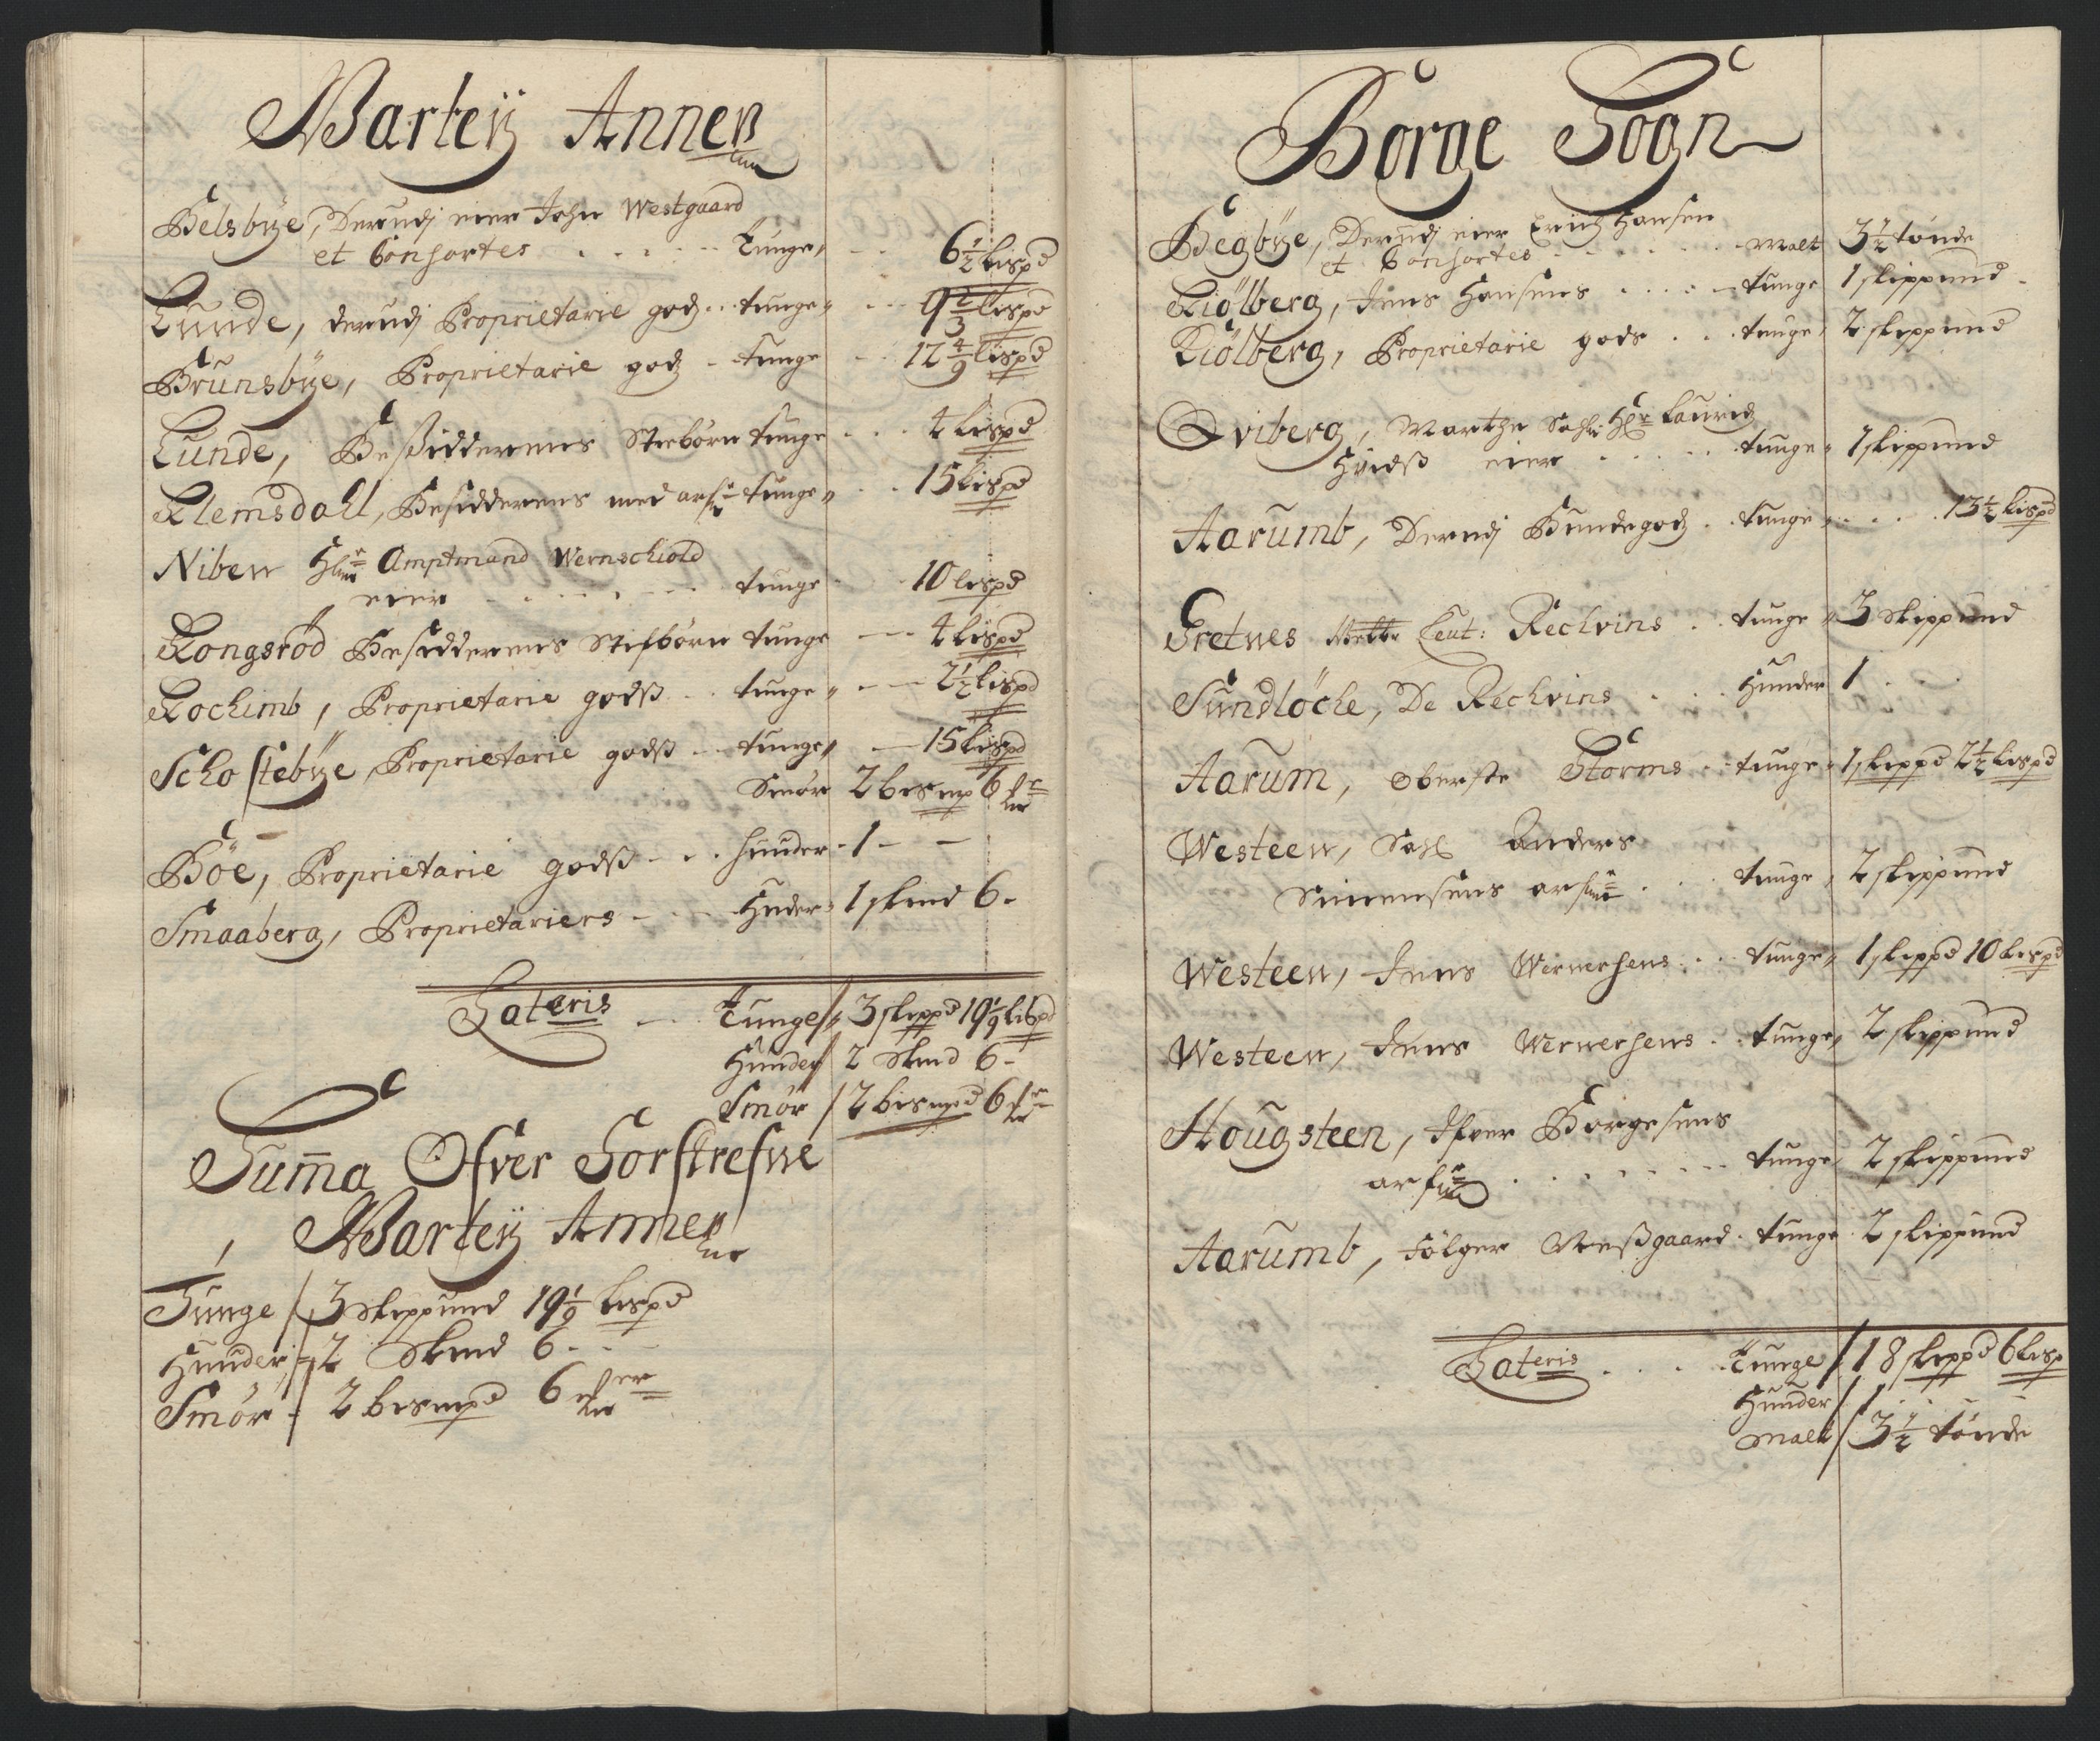 Warteij Annex
Helsbye, Derudj eier John Westgaard
et Consortes . . . . . Tunge, - - 6½ lispd
Lunde, derudj Proprietarie godz .. tunge, - - 9⅔ lispd
Brunsbye, Proprietarie godz - tunge - - 12 4/9 lispd
Lunde, Besidderens Stebörn tunge - - - 4 lispd
Klemsdall, Besidderens med arf: tunge, - - 15 lispd
Niben Amptmand Wernschiold
eier - - - - - tunge - - 10 lispd
Kongsröd Besidderens Stifbörn tunge - - - 4 lispd
Kochimb, Proprietarie godß .. tunge, - - 2½ lispd
Schostebye, Proprietarie godß .. tunge, - 15 lispd
Smör 2 bismp 6
Böe, Proprietarie godß - . . huuder - 1 - -
Smaaberg, Proprietariers - - - Huder - 1 skind 6 -
Lateris - - Tunge / 3 skippd 19 1/9 lispd
Huuder / 2 Skind 6 -
Smör / 2 bismpd 6
Summa Ofver Forskrefne
Warteij Annex
Tunge / 3 Skippund 19 1/9 lispd
Huuder / 2 Skind 6 - -
Smör - 2 bismpd 6
Borge Sogn
Begbye, Derudj eier Erich Hansen
et Consortes - - - - - Malt 3½ tönde
Kiölberg, Jens Hansens . . . . - tunge 1 skippund -
Kiölberg, Proprietarie gods . . . tunge, 2 skippund
Qviberg, Marthe Sahl: Hr Lauridz
Hvidß eier . . . . . tunge, 1 skippund
Aarumb, Derudj Bundegodz . . tunge, . . . . 13½ lispd
Gretnes Leut: Rechvins . . tunge, 3 Skippund
Sundlöche, De Rechvins . . . Huuder 1 . . .
Aarum, Oberste Storms . . tunge, 1 skippd 2½ lispd
Westeen, Sahl Anders
Simensens arf . . . tunge, 2 skippund
Westeen, Jens Wernersens . . . tunge, 1 skippd 10 lispd
Westeen, Jens Wernersens . . tunge, 2 skippund
Hougsteen, Ifver Borgesens
arf . . . . . . . tunge, 2 skippund
Aarumb, fölger Næßgaard . tunge 2 skippund
Lateris . . . . Tunge / 18 skippd 6 lisp
Huuder / 1 . . .
Malt / 3½ tönde